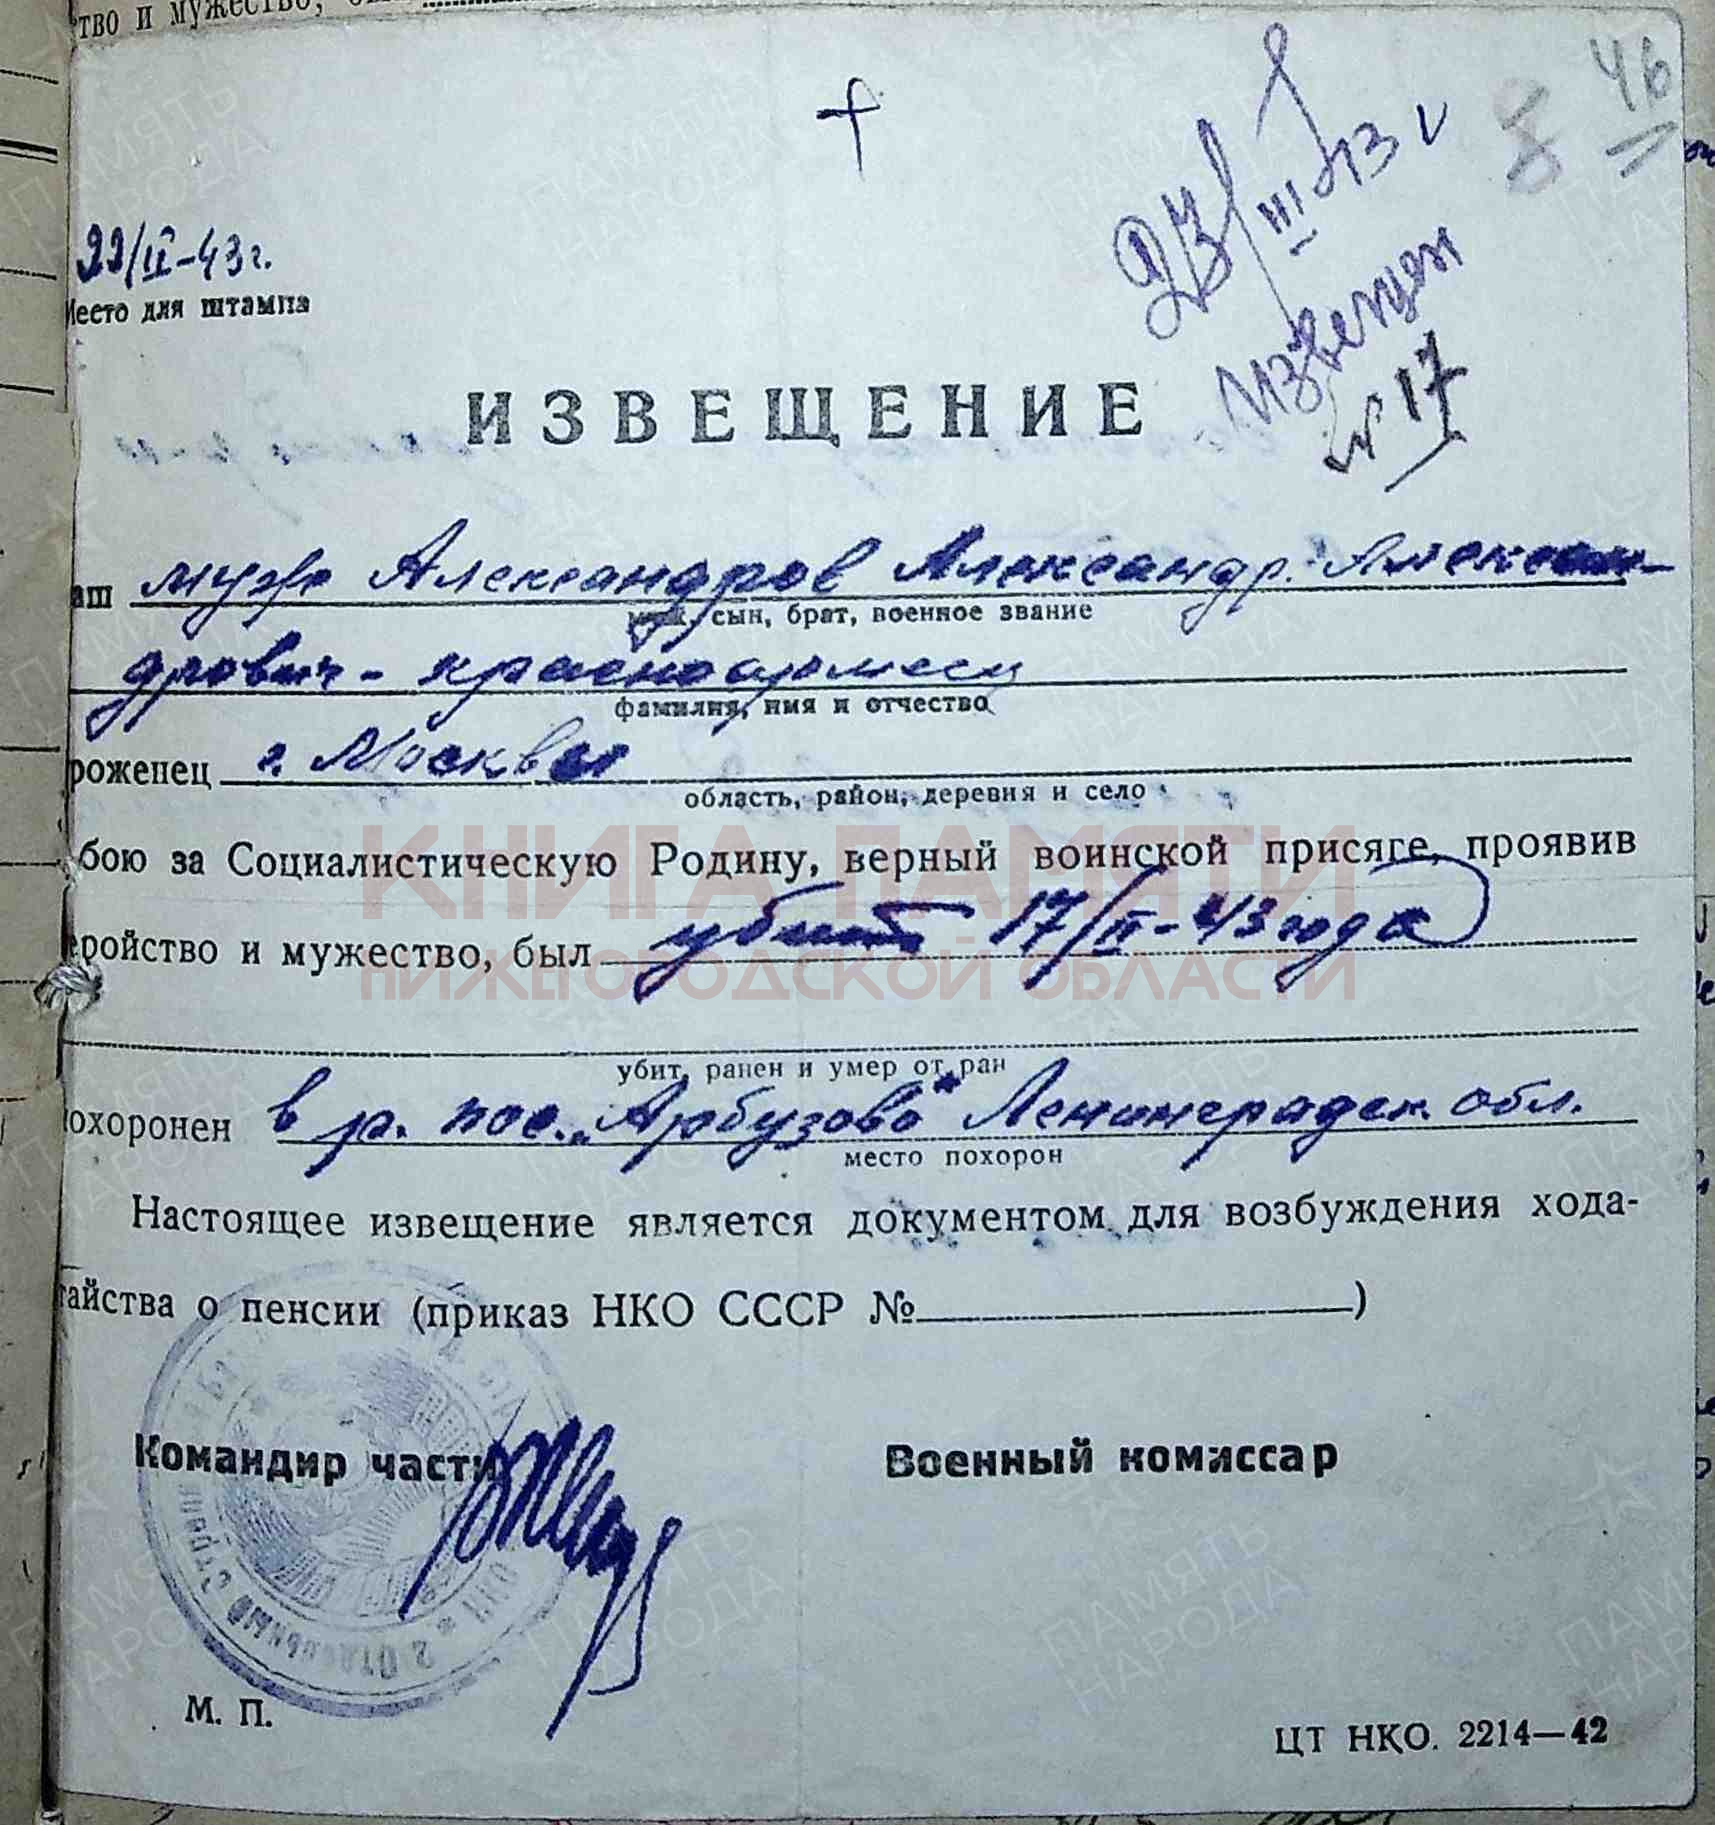 тво и мужество,
46
8
23/III 43 г
Извещен
№ 17
22/II-43г.
Место для штампа
ИЗВЕЩЕНИЕ
аш муж Александров Александр. Алексан-
муж, сын, брат, военное звание
дрович - красноармеец
фамилия, имя и отчество
роженец г. Москвы
область, район, деревня и село
бою за Социалистическую Родину, верный воинской присяге, проявив
КНИГА ПАМЯТИ
еройство и мужество, был убит 17/II-43 года
НИЖЕГОРОДСКОЙ ОБЛАСТИ
убит, ранен и умер от ран
охоронен в р. пос. „Арбузово" Ленинградск. обл.
место похорон
Настоящее извещение является документом для возбуждения хода-
тайства о пенсии (приказ НКО СССР №)
Командир части Военный комиссар
2 Отдельный стрелк
М. П.
ЦТ НКО. 2214—42
ПАМЯТЬ НАРОДА